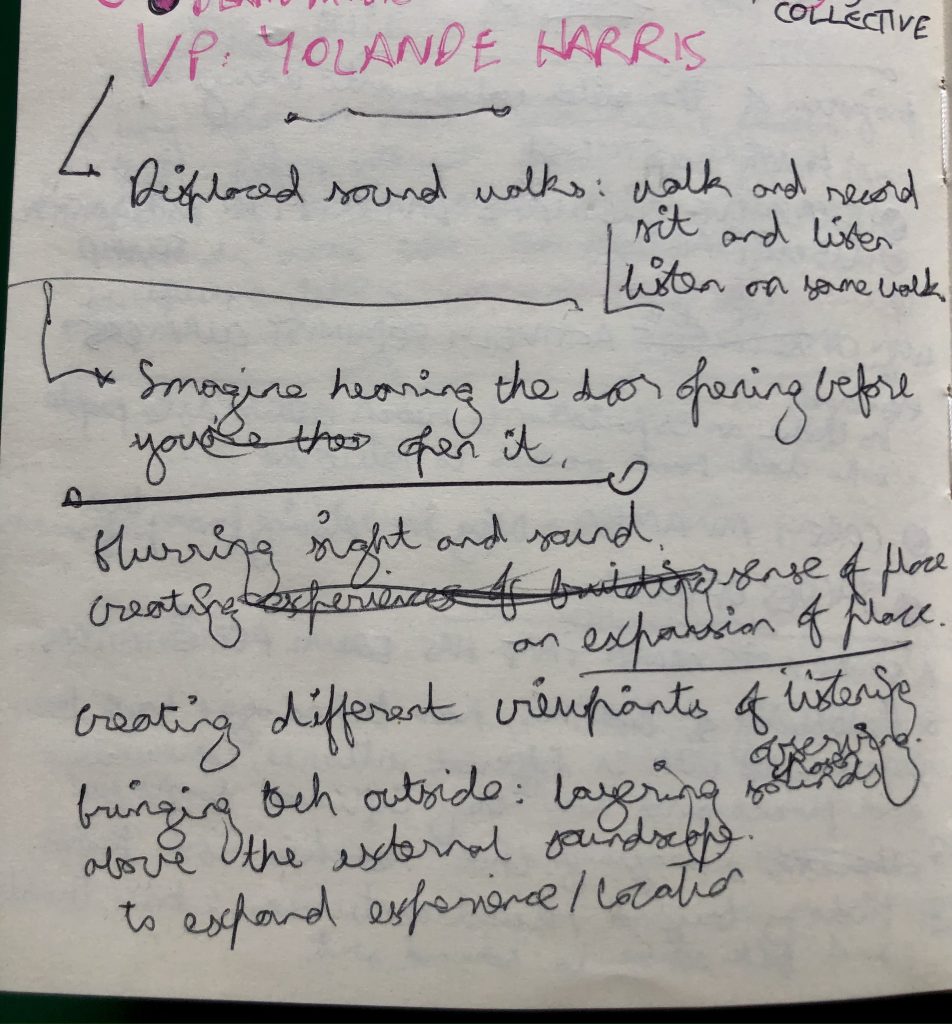 COLLECTIVE
VP: YOLANDE HARRIS
Displaced sound walks: walk and record
sit and listen
listen on same walk
Imagine hearing the door opening before
you open it.
blurring sight and sound.
creating experiences of building sense of place
an expansion of place.
creating different viewpoints of listening
bringing tech outside: layering sounds
above the external soundscape.
to expand experience/location